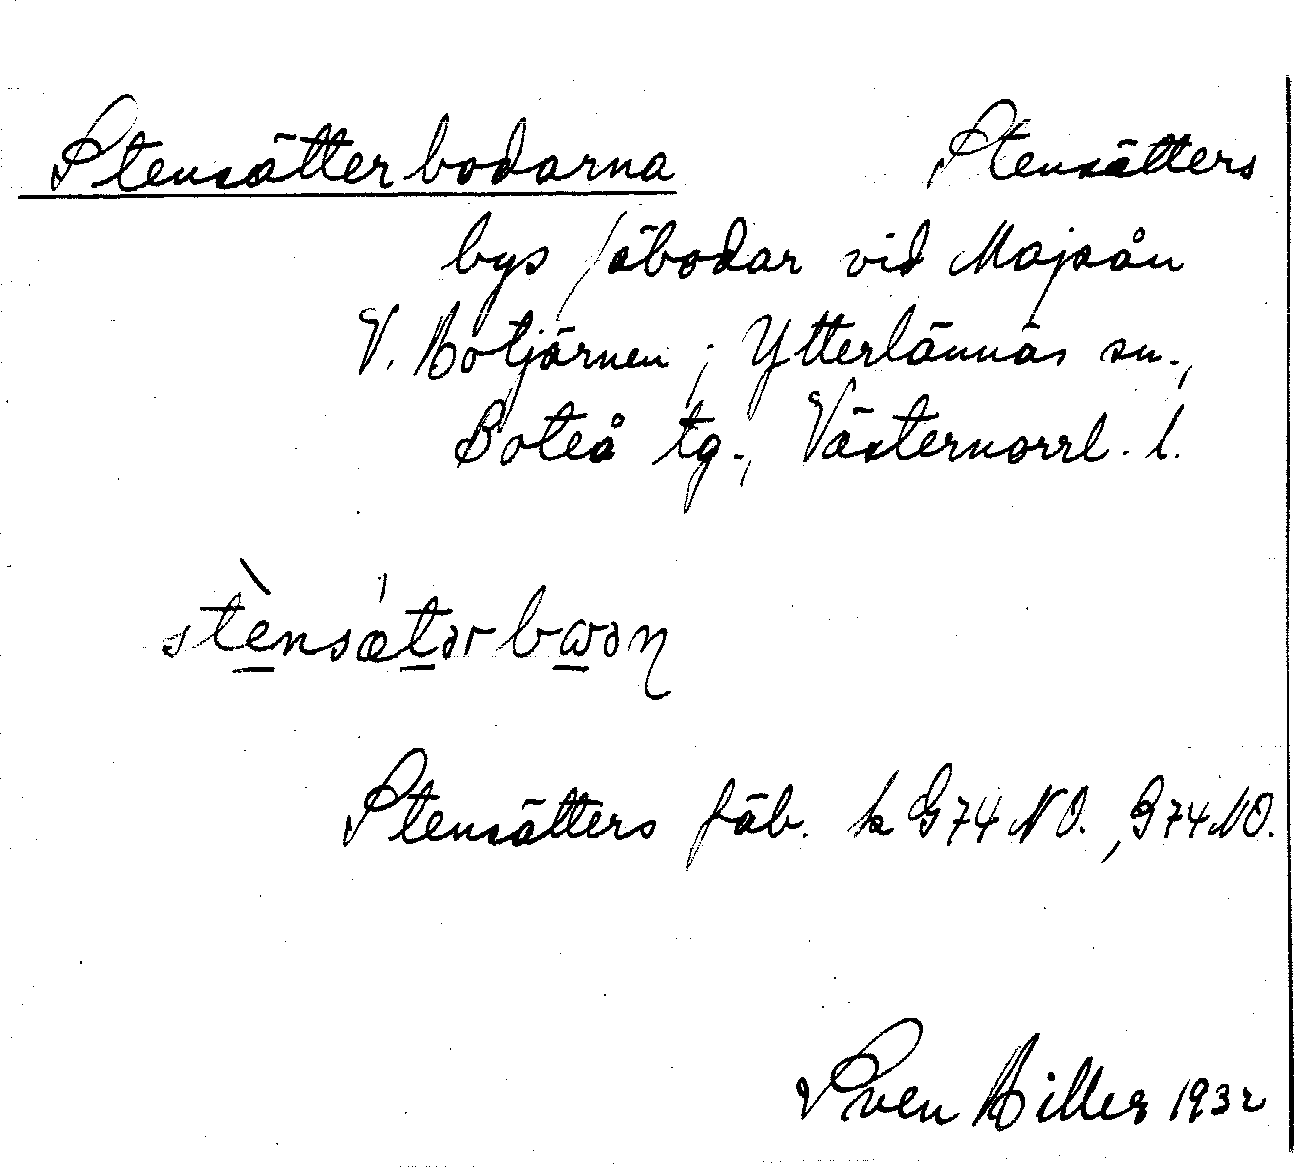 Stensätterbodarna Stensätters
bys fäbodar vid Majsån
V. Rotjärnen; Ytterlännäs sn.,
Boteå tg., Västernorrl. l.
stènsætərbωəɳ
Stensätters fäb. k G74NO., G74NO.
Sven 1932